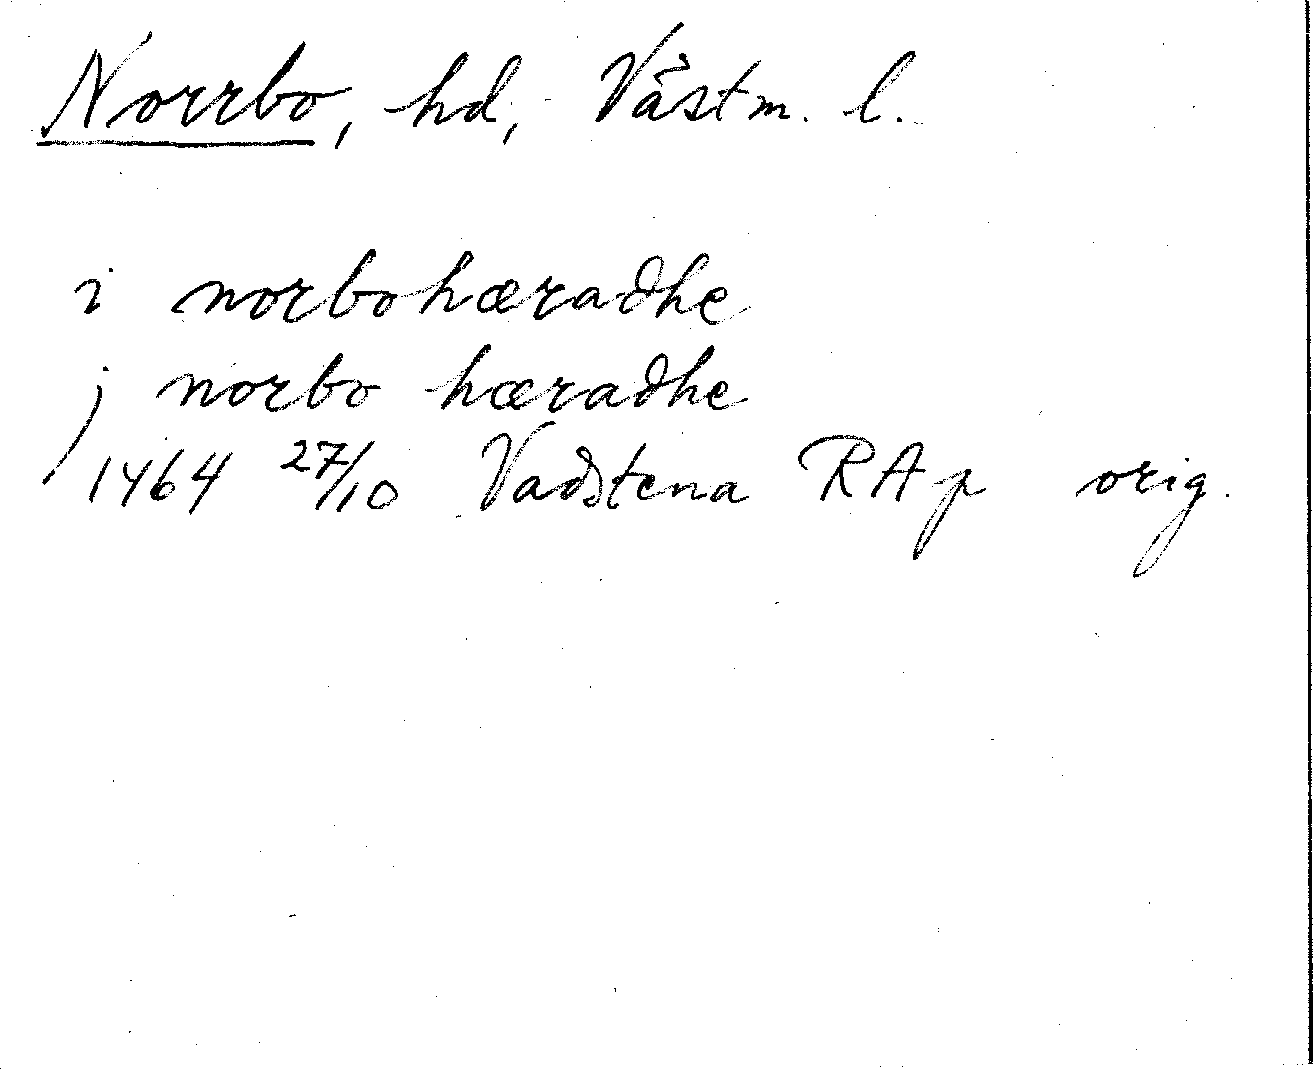 Norrbo, hd, Västm. l.
i norbohæradhe
j norbo hæradhe
1464 27/10 Vadstena RAp orig.